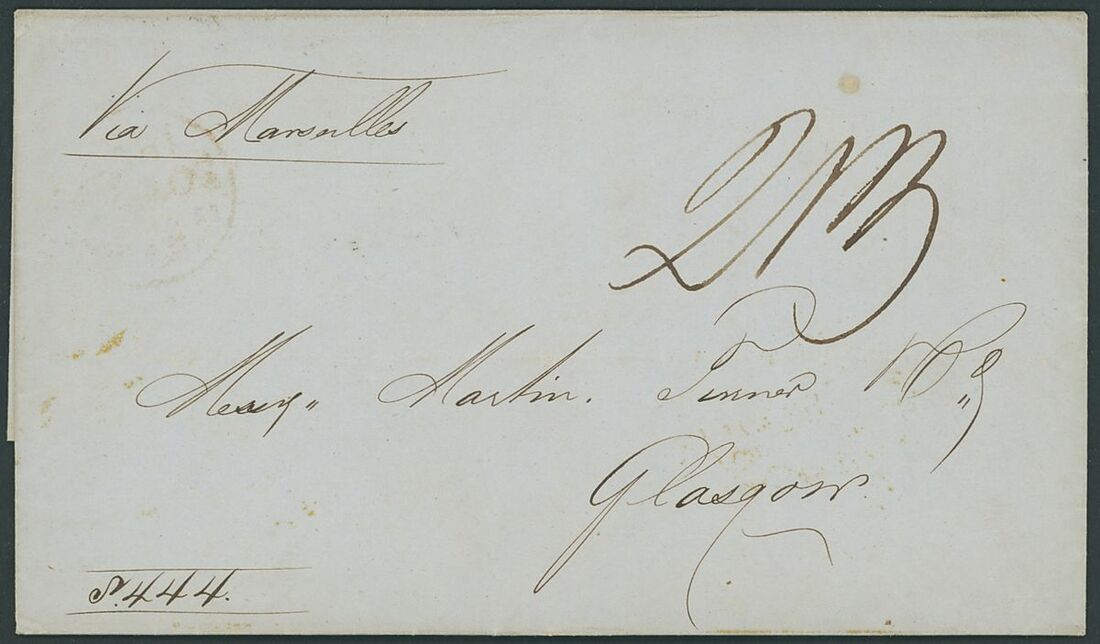 Via Marseilles
Messrs Martin. Turner & Co
Glasgow
No. 444.